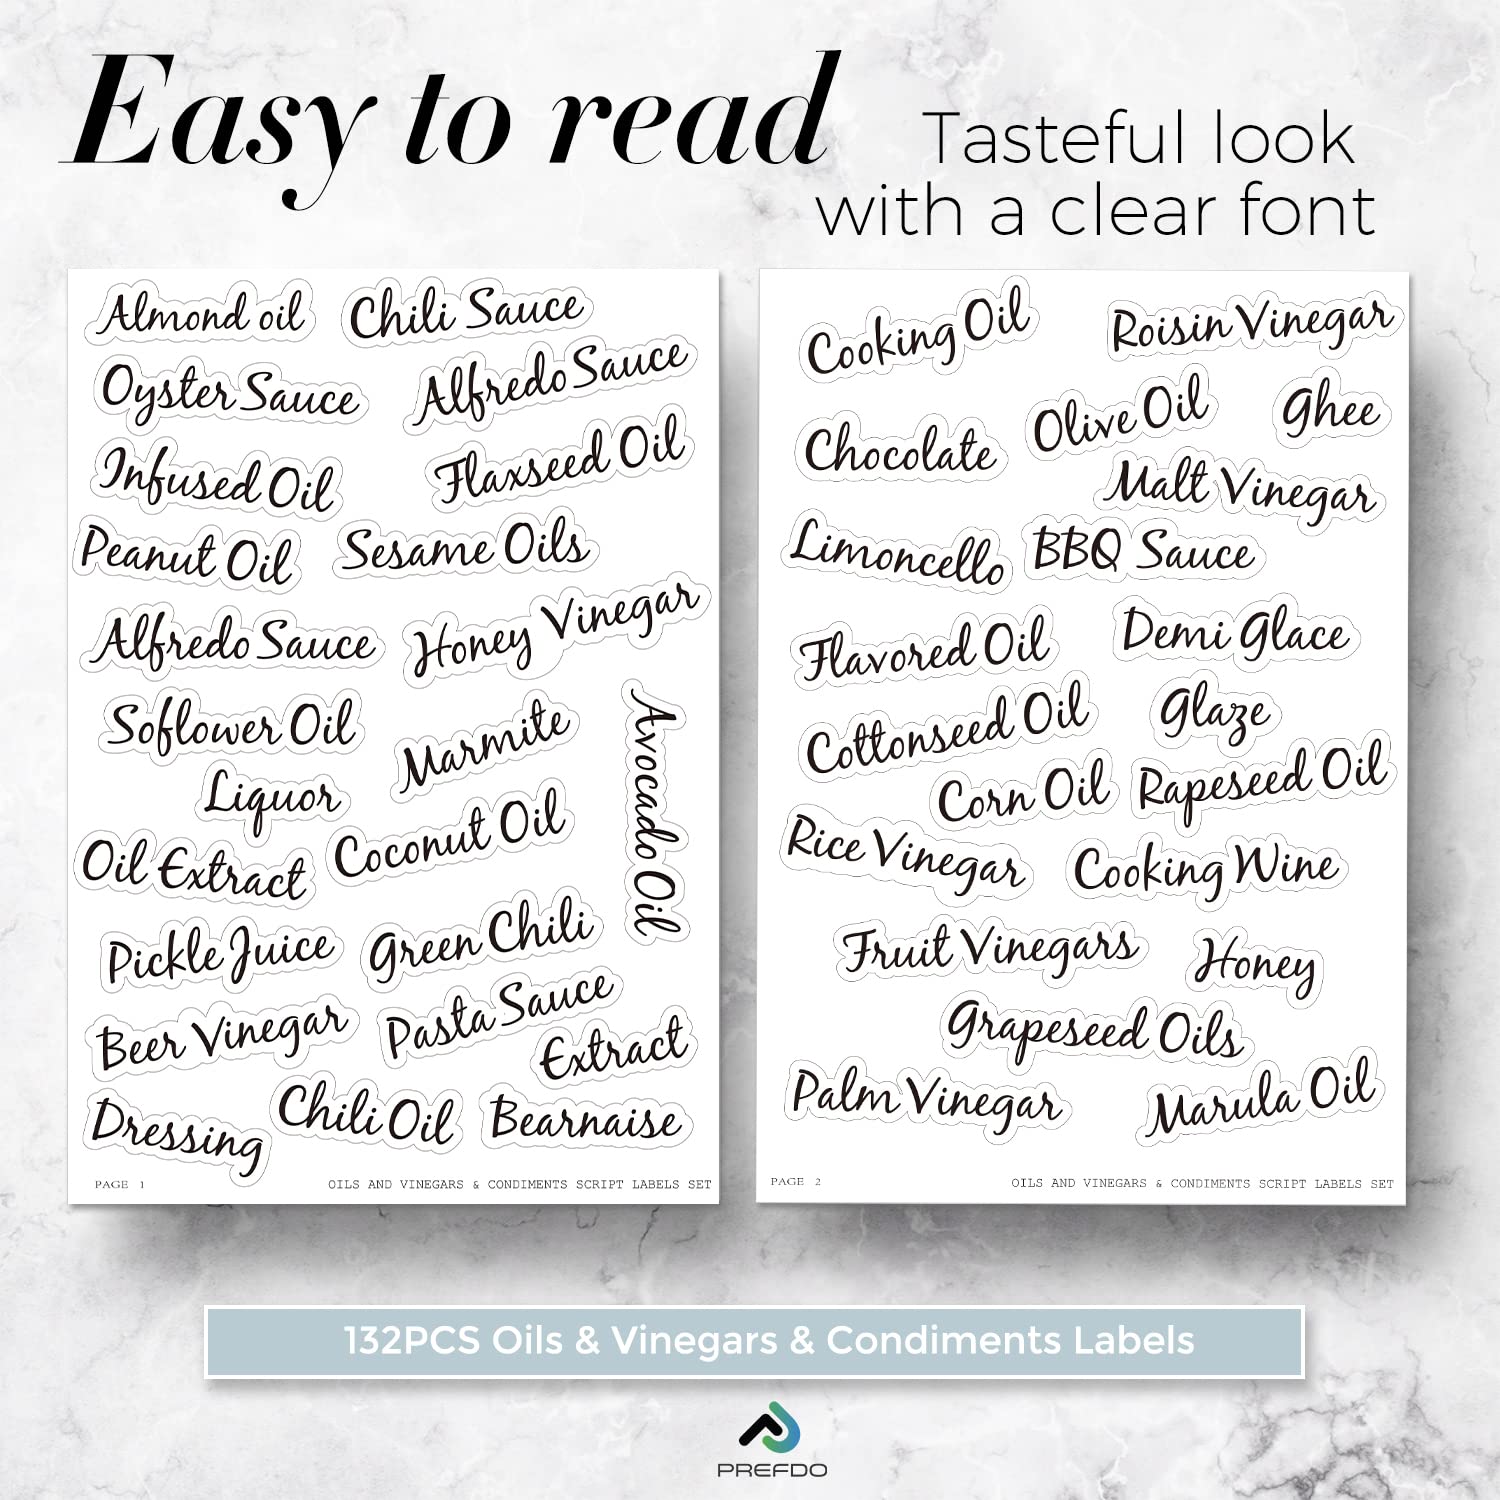 Easy to read
Tasteful look
with a clear font
Almond oil
Chili Sauce
Oyster Sauce
Alfredo Sauce
Infused Oil
Flaxseed Oil
Peanut Oil
Sesame Oils
Alfredo Sauce
Honey Vinegar
Soflower Oil
Marmite
Avocado Oil
Liquor
Coconut Oil
Oil Extract
Pickle Juice
Green Chili
Beer Vinegar
Pasta Sauce
Extract
Dressing
Chili Oil
Bearnaise
PAGE 1
OILS AND VINEGARS & CONDIMENTS SCRIPT LABELS SET
Cooking Oil
Roisin Vinegar
Chocolate
Olive Oil
Ghee
Malt Vinegar
Limoncello
BBQ Sauce
Flavored Oil
Demi Glace
Cottonseed Oil
Glaze
Corn Oil
Rapeseed Oil
Rice Vinegar
Cooking Wine
Fruit Vinegars
Honey
Grapeseed Oils
Palm Vinegar
Marula Oil
PAGE 2
OILS AND VINEGARS & CONDIMENTS SCRIPT LABELS SET
132PCS Oils & Vinegars & Condiments Labels
PREFDO